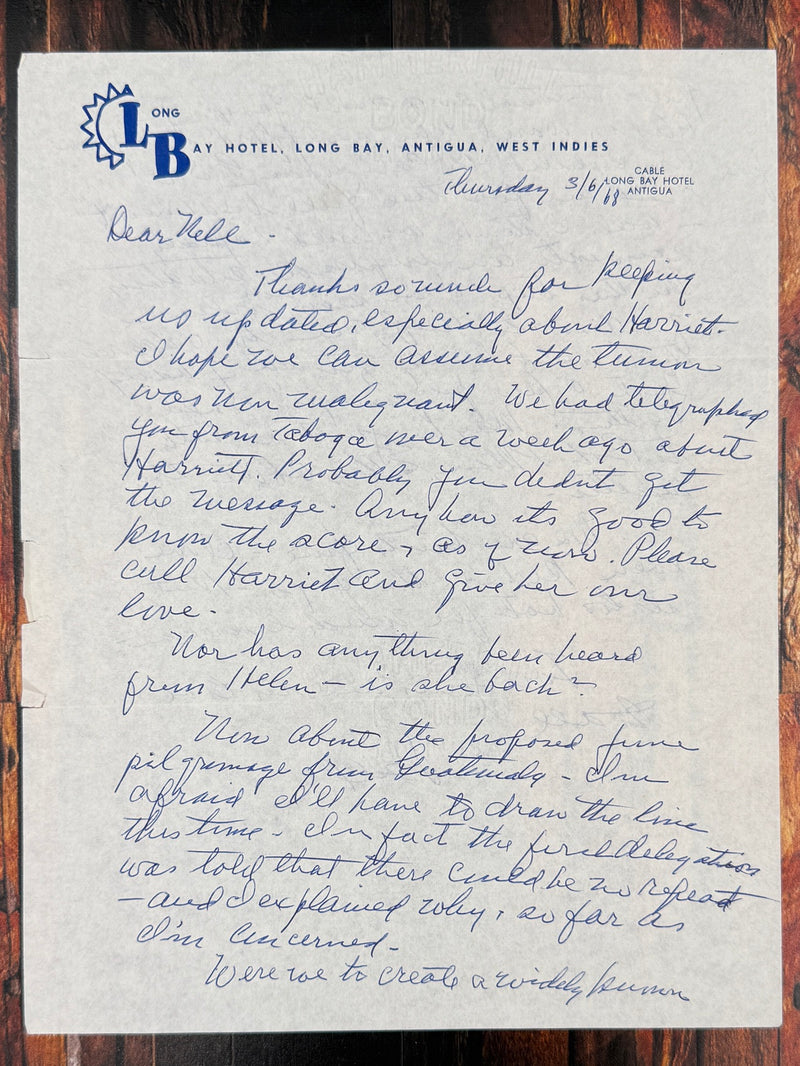 LONG
BAY HOTEL, LONG BAY, ANTIGUA, WEST INDIES
CABLE
LONG BAY HOTEL
ANTIGUA
Thursday 3/6/68
Dear Nell -
Thanks so much for keeping
us updated, especially about Harriet.
I hope we can assume the tumor
was non malignant. We had telegraphed
you from Taboga over a week ago about
Harriett. Probably you didn't get
the message. Anyhow its good to
know the score, as of now. Please
call Harriet and give her our
love.
Nor has anything been heard
from Helen - is she back?
Now about the proposed June
pilgrimage from Guatemala - I'm
afraid I'll have to draw the line
this time - In fact the first delegation
was told that there could be no repeat
- and I explained why, so far as
I'm concerned -
Were we to create a widely known